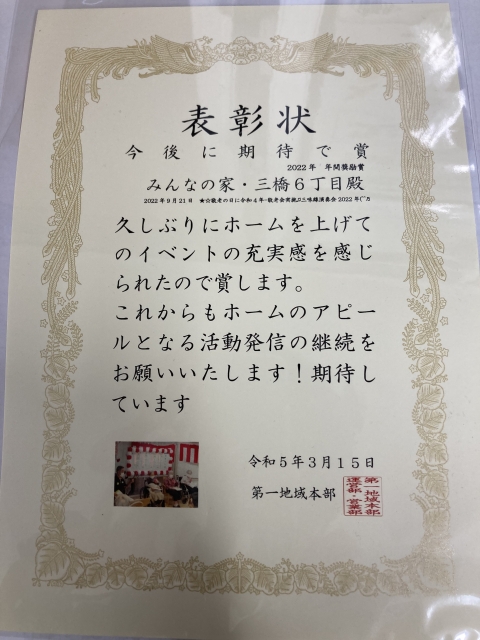 表彰状
今後に期待で賞
2022年 年間奨励賞
みんなの家・三橋6丁目殿
2022年9月21日 ★☆敬老の日に令和4年・敬老会実施♫三味線演奏会2022年
久しぶりにホームを上げて
のイベントの充実感を感じ
られたので賞します。
これからもホームのアピー
ルとなる活動発信の継続を
お願いいたします！期待し
ています
令和5年3月15日
第一地域本部
第一地域本部
運営部・営業部